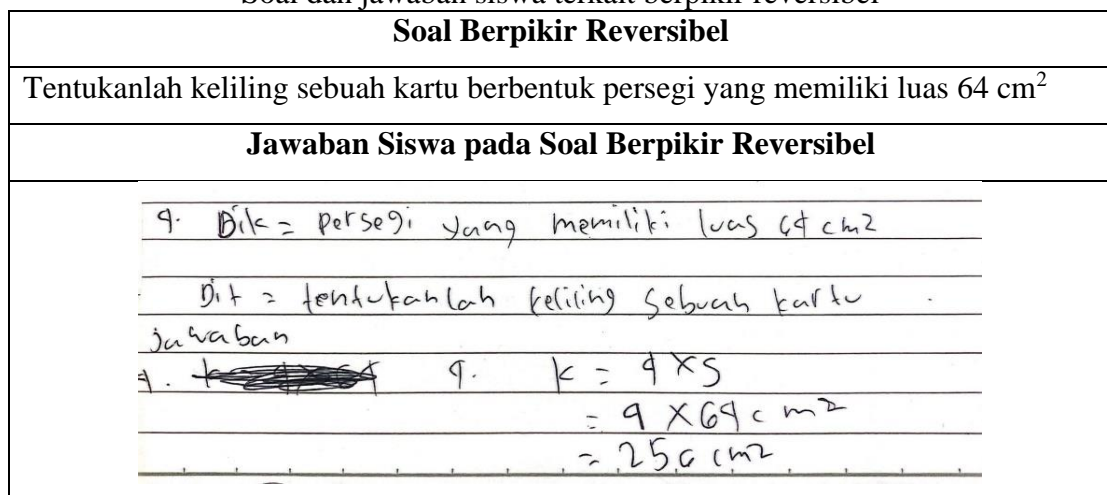 Soal dan jawaban siswa terkait berpikir reversibel
Soal Berpikir Reversibel
Tentukanlah keliling sebuah kartu berbentuk persegi yang memiliki luas 64 cm²
Jawaban Siswa pada Soal Berpikir Reversibel
4. Dik = persegi yang memiliki luas 64 cm2
Dit = tentukanlah keliling sebuah kartu
jawaban
4. k = 4 x 64 4. k = 4 x S
= 4 x 64 cm2
= 256 cm2